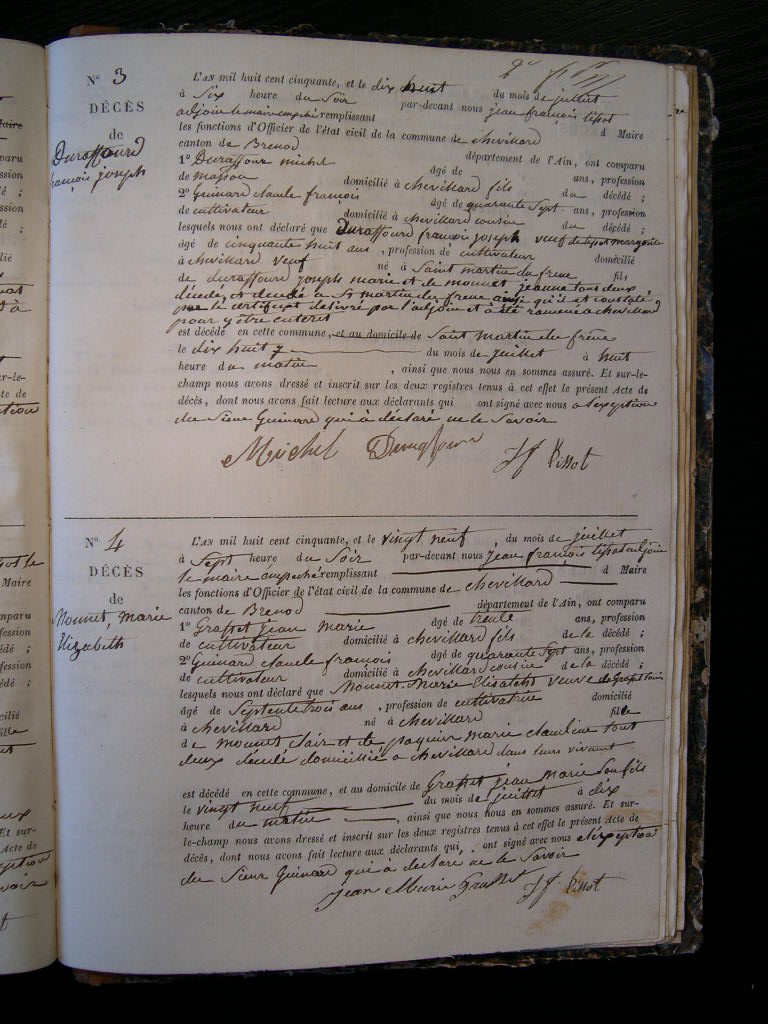 N° 3
DÉCÈS
de
Duraffourd
françois joseph
L'AN mil huit cent cinquante, et le dix huit du mois de juillet
à Six heure du Soir par-devant nous jean françois tissot
adjoin le maire empeché remplissant d Maire
les fonctions d'Officier de l'état civil de la commune de chevillard
canton de Brenod département de l'Ain, ont comparu
1° Duraffour michel âgé de ans, profession
de masson domicilié à chevillard fils du décédé ;
2° Guinard claude françois âgé de quarante Sept ans, profession
de cultivateur domicilié à chevillard cousin du décédé ;
lesquels nous ont déclaré que Duraffourd françois joseph veuf de tissot margorite
âgé de cinquante huit ans , profession de cultivateur domicilié
à chevillard veuf né à Saint martin du frene fils
de duraffourd joseph marie et de monnet jeanne tous deux
décédes et décédé a St martin du frene ainsi qu'il et constaté
par le certificat delivré par l'adjoin et a été ramené a chevillard
pour y être enteret
est décédé en cette commune, et au domicile de Saint martin du frêne
le dix huit du mois de juillet à huit
heure du matin , ainsi que nous nous en sommes assuré. Et sur-le-
champ nous avons dressé et inscrit sur les deux registres tenus à cet effet le présent Acte de
décès, dont nous avons fait lecture aux déclarants qui ont signé avec nous a l'exeption
du Sieur Guinard qui a déclaré ne le Savoir
Michel Duraffour JF Tissot
N° 4
DÉCÈS
de
Monnet, Marie
Elizabeth
L'AN mil huit cent cinquante, et le vingt neuf du mois de juillet
à Sept heure du Soir par-devant nous jean françois tissot adjoin
le maire empeché remplissant d Maire
les fonctions d'Officier de l'état civil de la commune de chevillard
canton de Brenod département de l'Ain, ont comparu
1° Grasset jean Marie âgé de trente ans, profession
de cultivateur domicilié à chevillard fils de la décédé ;
2° Guinard claude françois âgé de quarante Sept ans, profession
de cultivateur domicilié à chevillard cousin de la décédé ;
lesquels nous ont déclaré que Monnet Marie Elisabeth veuve de Grasset
âgé de Septente trois ans , profession de cultivatrice domicilié
à chevillard né à chevillard fille
de monnet clair et de jaquier marie claudine tout
deux décédé domicillié a chevillard dans leurs vivant
est décédé en cette commune, et au domicile de Grasset jean Marie Son fils
le vingt neuf du mois de juillet à dix
heure du matin , ainsi que nous nous en sommes assuré. Et sur-
le-champ nous avons dressé et inscrit sur les deux registres tenus à cet effet le présent Acte de
décès, dont nous avons fait lecture aux déclarants qui, ont signé avec nous a l'exeption
du Sieur Guinard qui a déclaré ne le Savoir
Jean Marie Grasset JF Tissot